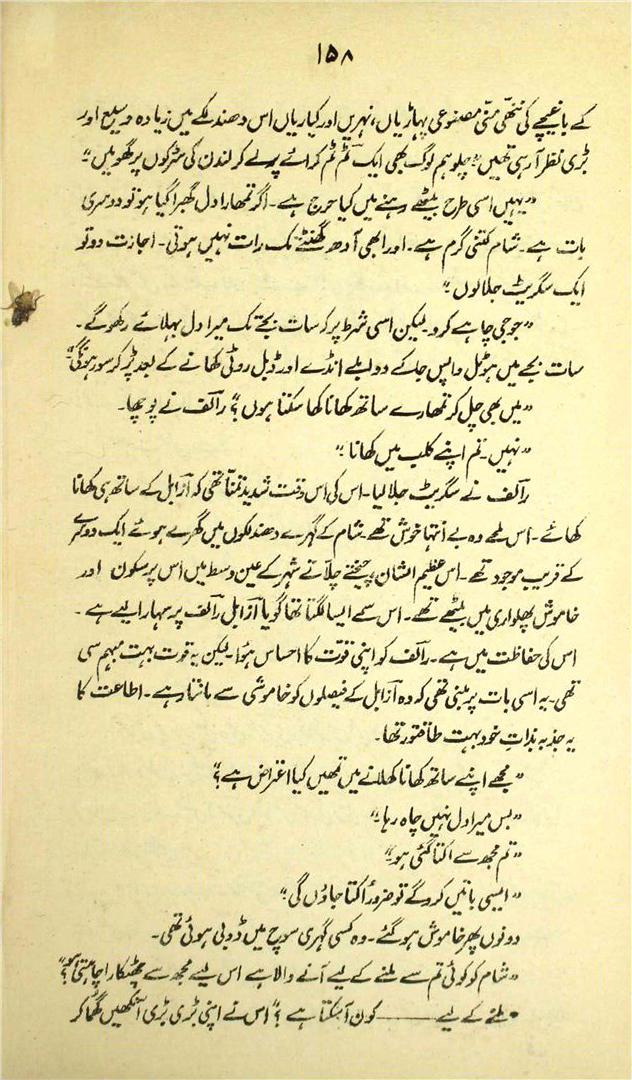 ۱۵۸
کے باغیچے کی ننھی منّی مصنوعی پہاڑیاں، نہریں اور کیاریاں اس دھندلکے میں زیادہ وسیع اور
بڑی نظر آ رہی تھیں؛ چلو ہم لوگ بھی ایک ٹم ٹم کرائے پر لے کر لندن کی سڑکوں پر گھومیں“
”یہیں اسی طرح بیٹھے رہنے میں کیا حرج ہے۔ اگر تمھارا دل گھبرا گیا ہو تو دوسری
بات ہے۔ شام کتنی گرم ہے۔ اور ابھی آدھ گھنٹے تک رات نہیں ہوتی۔ اجازت دو تو
ایک سگریٹ جلا لوں“
”جو جی چاہے کرو۔ لیکن اسی شرط پر کہ سات بجے تک میرا دل بہلائے رکھو گے۔
سات بجے میں ہوٹل واپس جا کے دو ابلے انڈے اور ڈبل روٹی کھانے کے بعد پڑ کر سو رہونگی“
”میں بھی چل کر تمھارے ساتھ کھانا کھا سکتا ہوں؟“ رالف نے پوچھا۔
”نہیں۔ تم اپنے کلب میں کھانا“
رالف نے سگریٹ جلا لیا۔ اس کی اس وقت شدید تمنّا تھی کہ آزابل کے ساتھ ہی کھانا
کھائے۔ اس لمحے وہ بے انتہا خوش تھے۔ شام کے گہرے دھندلکوں میں گھرے ہوئے ایک دوسرے
کے قریب موجود تھے۔ اس عظیم الشان، چیختے چلّاتے شہر کے عین وسط میں اس پرسکون اور
خاموش پھلواری میں بیٹھے تھے۔ اس سمے ایسا لگتا تھا گویا آزابل رالف پر سہارا لیے ہے۔
اس کی حفاظت میں ہے۔ رالف کو اپنی قوّت کا احساس ہوا۔ لیکن یہ قوت بہت مبہم سی
تھی۔ یہ اسی بات پر مبنی تھی کہ وہ آزابل کے فیصلوں کو خاموشی سے مانتا رہے۔ اطاعت کا
یہ جذبہ بذاتِ خود بہت طاقتور تھا۔
”مجھے اپنے ساتھ کھانا کھلانے میں تمھیں کیا اعتراض ہے؟“
”بس میرا دل نہیں چاہ رہا“
”تم مجھ سے اکتا گئی ہو“
”ایسی باتیں کرو گے تو ضرور اکتا جاؤں گی“
دونوں پھر خاموش ہو گئے۔ وہ کسی گہری سوچ میں ڈوبی ہوئی تھی۔
”شام کو کوئی تم سے ملنے کے لیے آنے والا ہے اس لیے مجھ سے چھٹکارا چاہتی ہو؟“
”ملنے کے لیے ــــــ کون آ سکتا ہے؟“ اس نے اپنی بڑی بڑی آنکھیں گھما کر